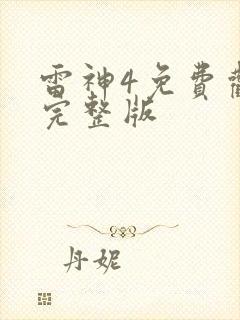 雷神4免費
完整版
丹妮